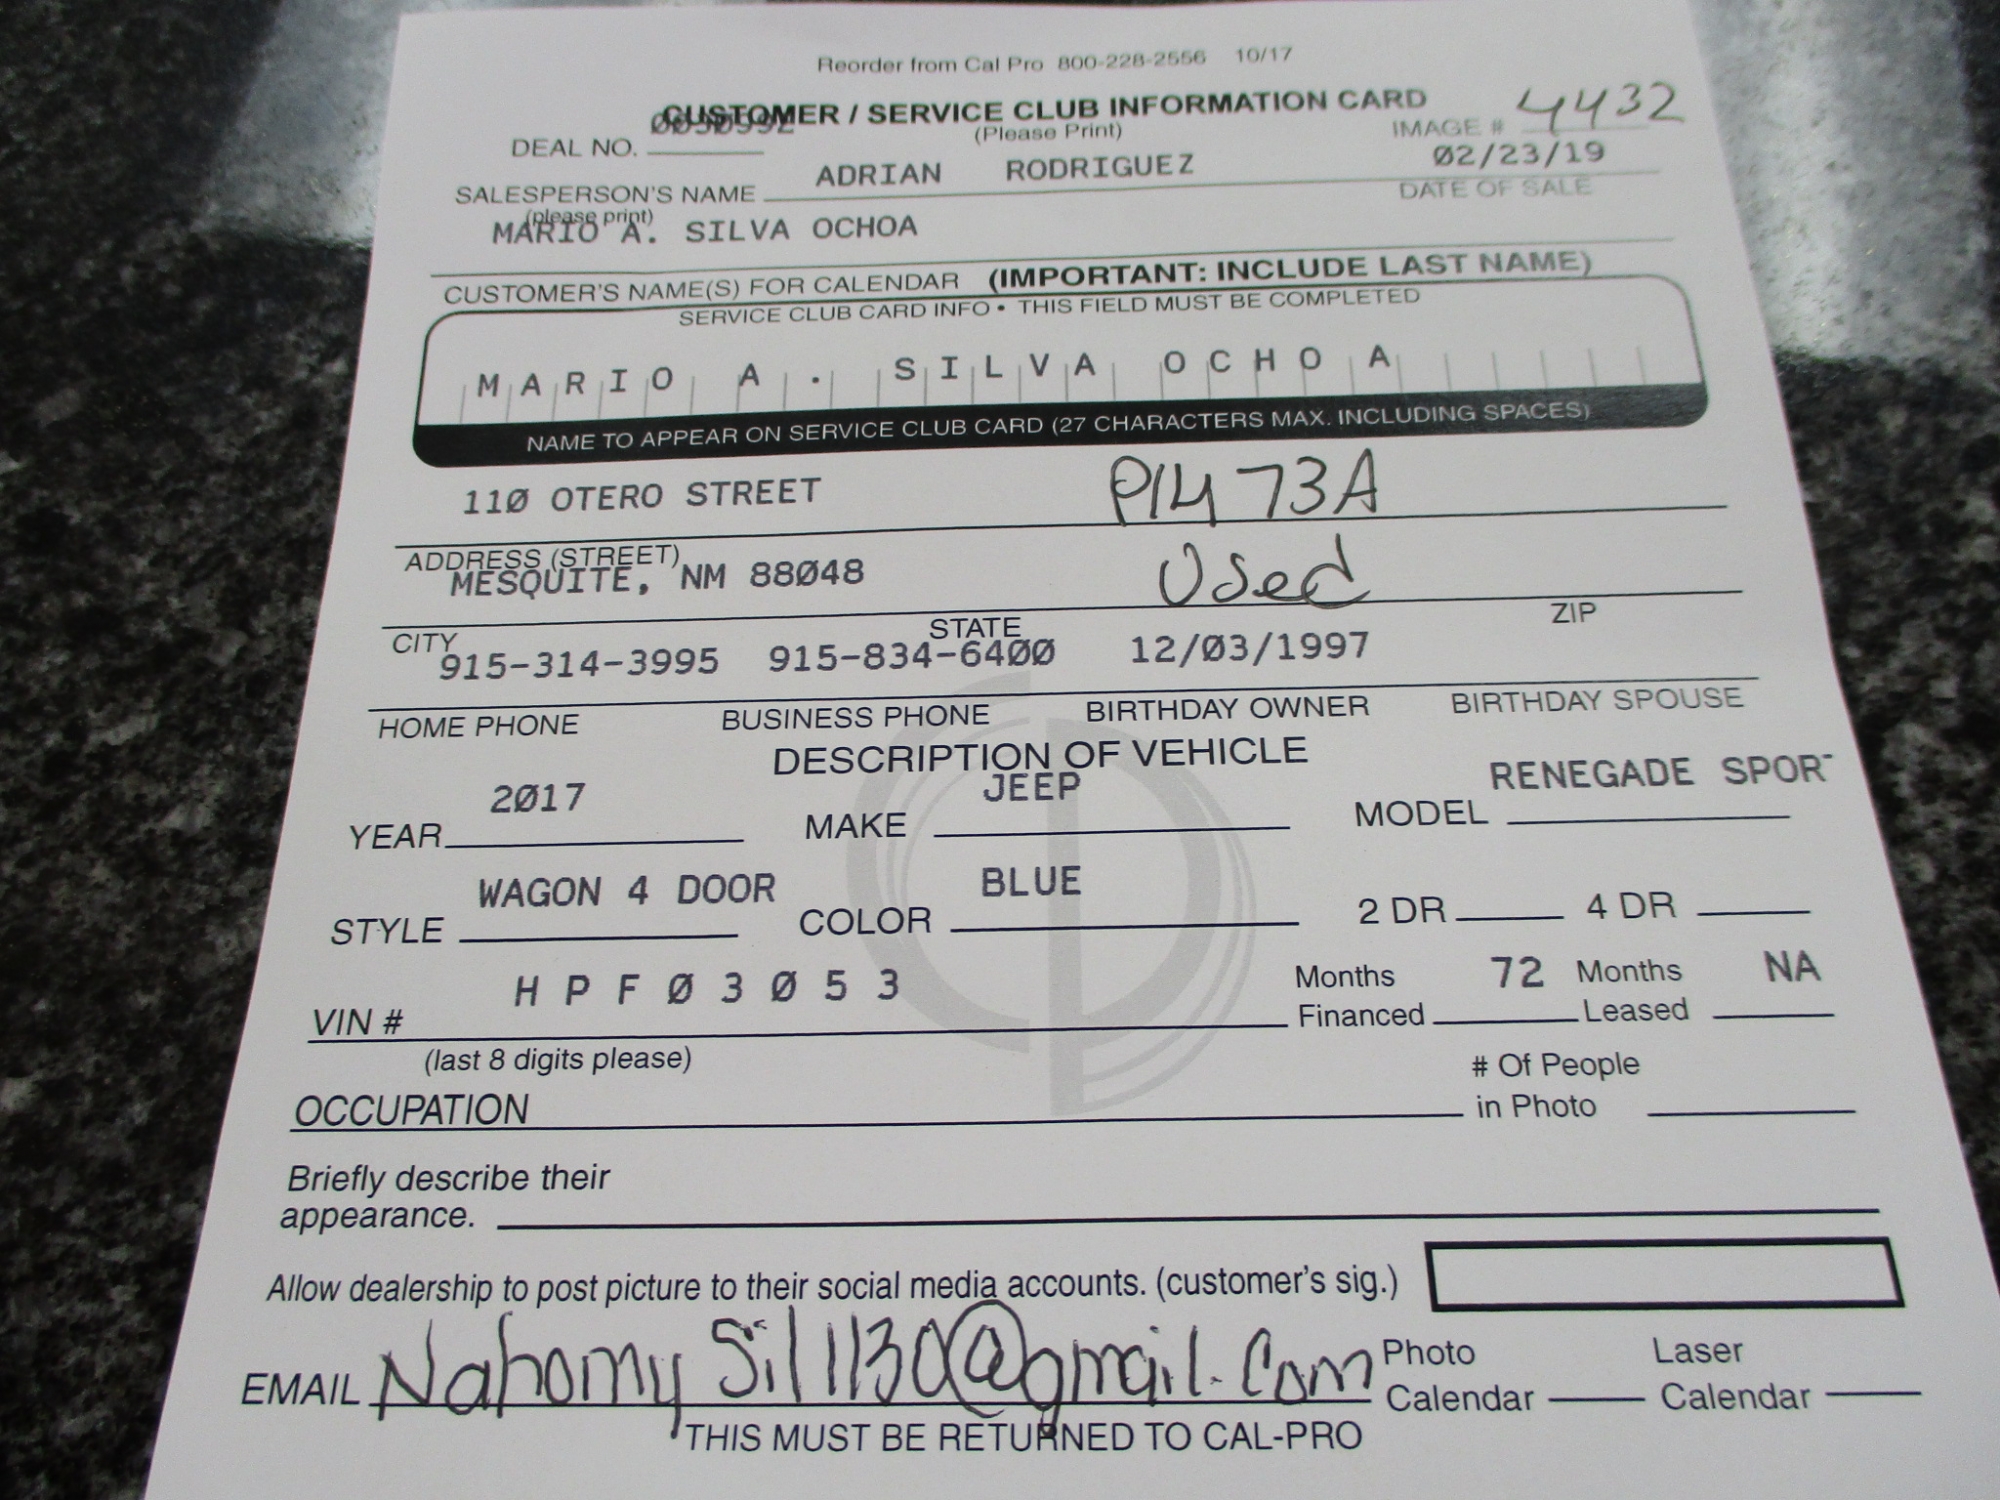 Reorder from Cal Pro 800-228-2556 10/17
CUSTOMER / SERVICE CLUB INFORMATION CARD
(Please Print)
IMAGE # 4432
DEAL NO.
02/23/19
DATE OF SALE
SALESPERSON'S NAME ADRIAN RODRIGUEZ
(please print)
MARIO A. SILVA OCHOA
CUSTOMER'S NAME(S) FOR CALENDAR (IMPORTANT: INCLUDE LAST NAME)
SERVICE CLUB CARD INFO • THIS FIELD MUST BE COMPLETED
MARIO A. SILVA OCHOA
NAME TO APPEAR ON SERVICE CLUB CARD (27 CHARACTERS MAX. INCLUDING SPACES)
110 OTERO STREET P1473A
ADDRESS (STREET)
MESQUITE, NM 88048 Used
CITY STATE ZIP
915-314-3995 915-834-6400 12/03/1997
HOME PHONE BUSINESS PHONE BIRTHDAY OWNER BIRTHDAY SPOUSE
DESCRIPTION OF VEHICLE
YEAR 2017 MAKE JEEP MODEL RENEGADE SPOR
STYLE WAGON 4 DOOR COLOR BLUE 2 DR 4 DR
VIN # HPF03053 Months Financed 72 Months Leased NA
(last 8 digits please)
OCCUPATION # Of People in Photo
Briefly describe their
appearance.
Allow dealership to post picture to their social media accounts. (customer's sig.)
EMAIL NahomySil1130@gmail.com Photo Calendar Laser Calendar
THIS MUST BE RETURNED TO CAL-PRO